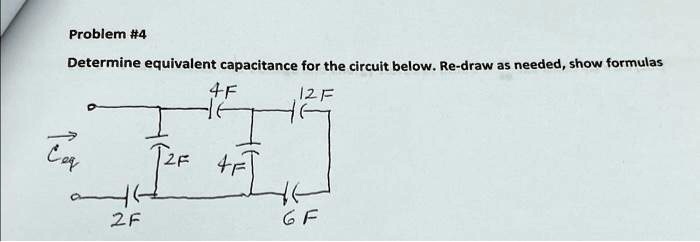 Problem #4
Determine equivalent capacitance for the circuit below. Re-draw as needed, show formulas
4F
12F
Ceq
2F
4F
2F
6F